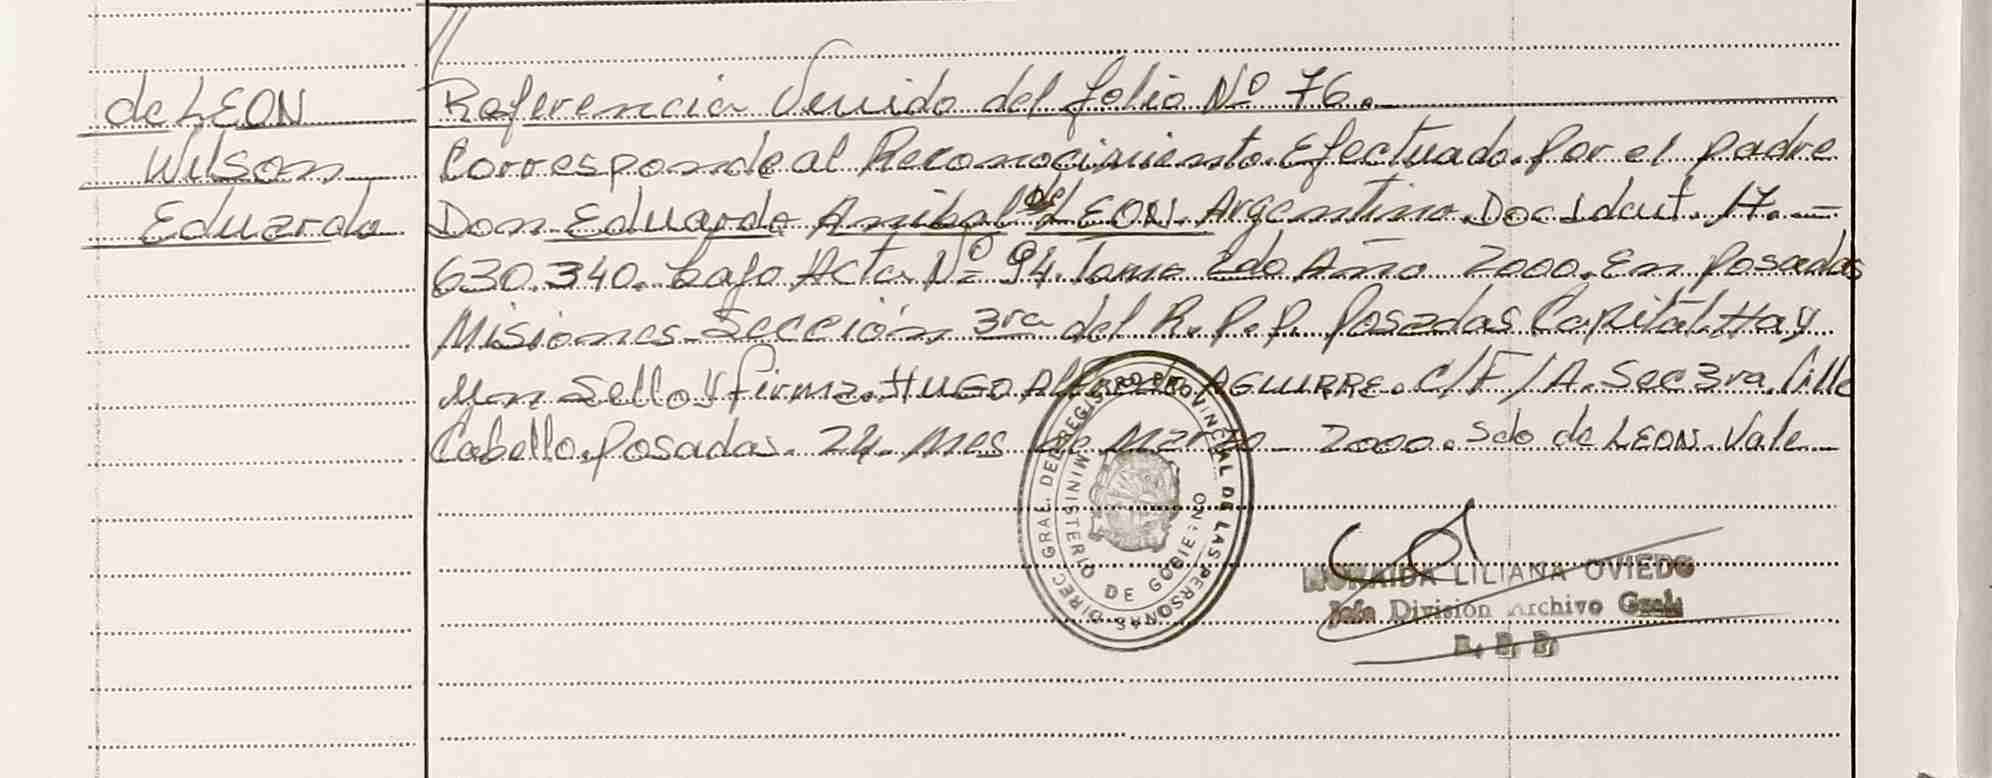 //
de LEON
Wilson
Eduardo
Referencia Venido del folio Nº 76.
Corresponde al Reconocimiento. Efectuado. Por el padre
Don Eduardo Anibal de LEON. Argentino. Doc Idant. 17.-
630.340. bajo Acta Nº 94. Tomo 2do Año 2000. En Posadas
Misiones. Sección 3ra del R. P. P. Posadas Capital. Hay
un Sello y firma. HUGO AGUIRRE. C/F/A. Sec 3ra. Villa
Cabello. Posadas. 24. Mes de Marzo 2000. Sdo de LEON. Vale
DIREC. GRAL. DEL REGISTRO PROVINCIAL DE LAS PERSONAS
MINISTERIO DE GOBIERNO
LILIANA OVIEDO
Jefe División Archivo Gral.
R. P. P.